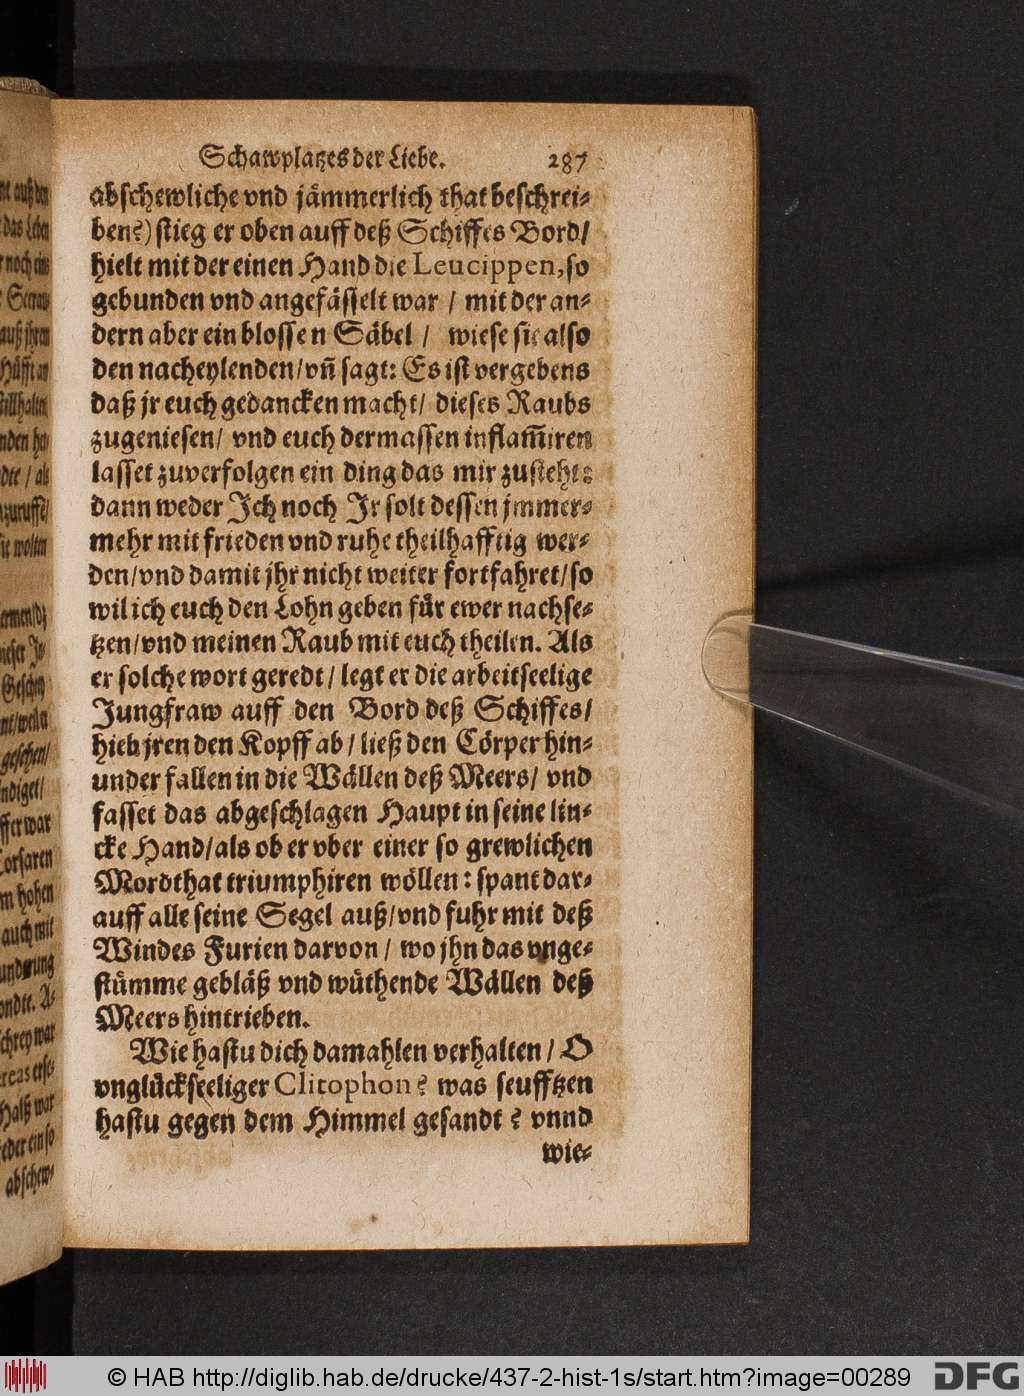 Schawplatzes der Liebe. 287
abschewliche vnd jämmerlich that beschrei-
ben?) stieg er oben auff deß Schiffes Bord/
hielt mit der einen Hand die Leucippen, so
gebunden vnd angefässelt war / mit der an-
dern aber ein blossen Säbel / wiese sie also
den nacheylenden/ vn̄ sagt: Es ist vergebens
daß jr euch gedancken macht/ dieses Raubs
zugeniesen/ vnd euch dermassen inflam̄iren
lasset zuverfolgen ein ding das mir zusteht:
dann weder Ich noch Ir solt dessen jmmer-
mehr mit frieden vnd ruhe theilhafftig wer-
den/ vnd damit jhr nicht weiter fortfahret/ so
wil ich euch den Lohn geben für ewer nachse-
tzen/ vnd meinen Raub mit euch theilen. Als
er solche wort geredt / legt er die arbeitseelige
Jungfraw auff den Bord deß Schiffes/
hieb jren den Kopff ab / ließ den Cörper hin-
under fallen in die Wällen deß Meers/ vnd
fasset das abgeschlagen Haupt in seine lin-
cke Hand/ als ob er vber einer so grewlichen
Mordthat triumphiren wöllen: spant dar-
auff alle seine Segel auß/ vnd fuhr mit deß
Windes Furien darvon / wo jhn das vnge-
stümme gebläß vnd wüthende Wällen deß
Meers hintrieben.
Wie hastu dich damahlen verhalten / O
vnglückseeliger Clitophon? was seufftzen
hastu gegen dem Himmel gesandt? vnnd
wie-
© HAB http://diglib.hab.de/drucke/437-2-hist-1s/start.htm?image=00289
DFG